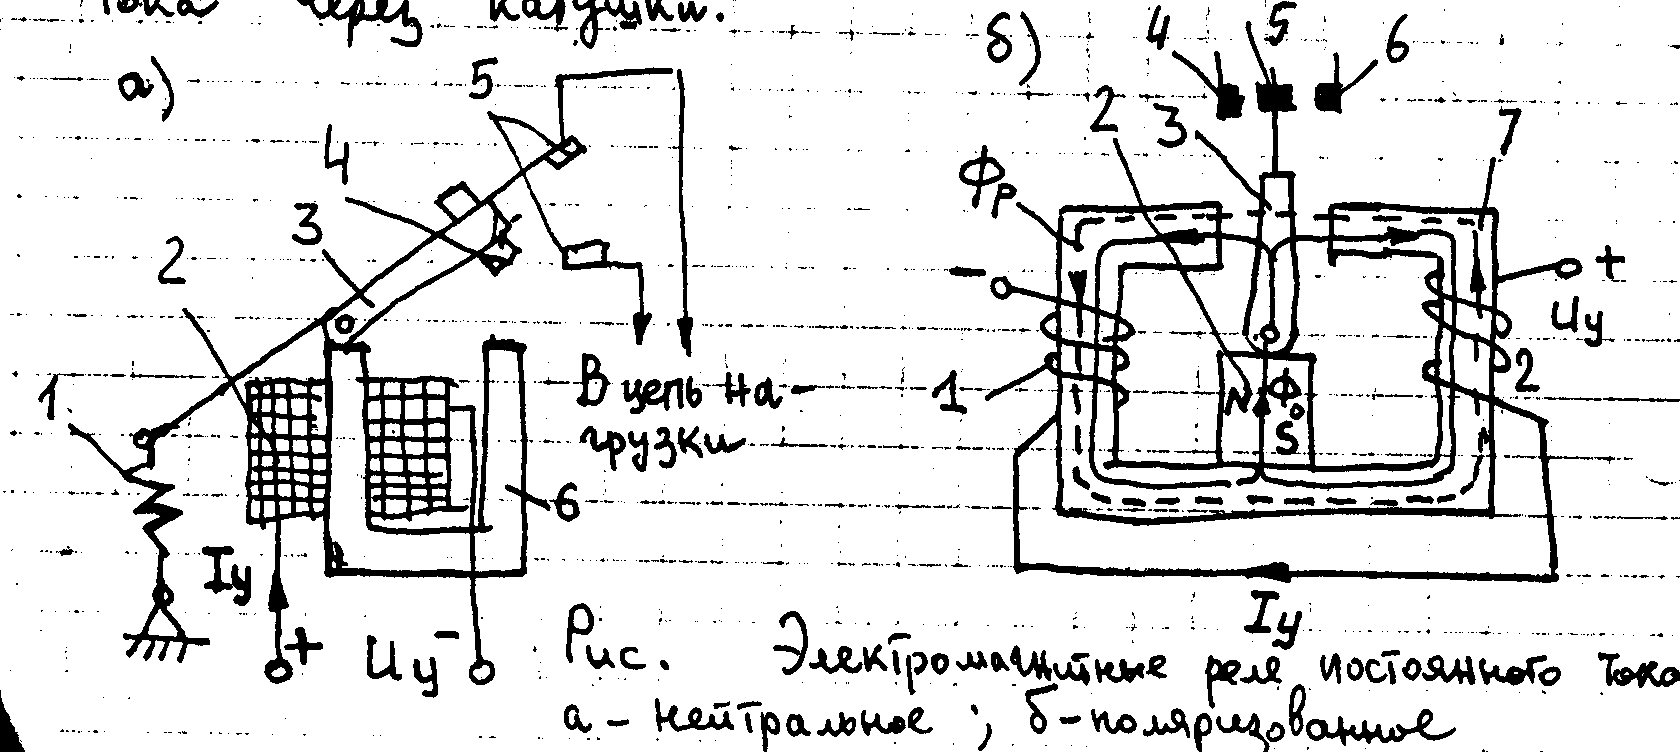 тока через катушки.
а)
5
4
3
2
1
В цепь на-
грузки
6
Iу
+
Uу
-
б)
4
5
6
2
3
7
Фр
-
+
Uу
1
2
N
Фо
S
Iу
Рис. Электромагнитные реле постоянного тока
а - нейтральное ; б - поляризованное